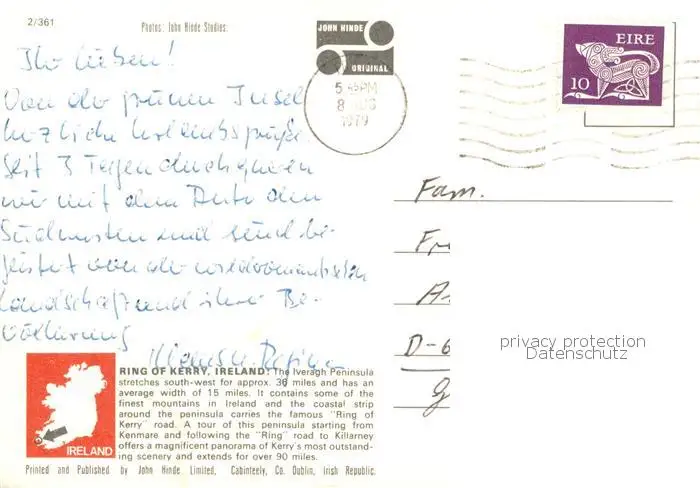 2/361
Photos: John Hinde Studios.
JOHN HINDE
ORIGINAL
5 45PM
8 AUG
1979
EIRE
10
Ihr Lieben!
Von der grünen Insel
herzliche Urlaubsgrüße.
Seit 3 Tagen durchqueren
wir mit dem Auto den
Südwesten und sind be-
geistert von der wildromantischen
Landschaft und ihrer Be-
völkerung
Regina
Fam.
Fr
A
D-6
G
privacy protection
Datenschutz
IRELAND
RING OF KERRY, IRELAND: The Iveragh Peninsula
stretches south-west for approx. 36 miles and has an
average width of 15 miles. It contains some of the
finest mountains in Ireland and the coastal strip
around the peninsula carries the famous "Ring of
Kerry" road. A tour of this peninsula starting from
Kenmare and following the "Ring" road to Killarney
offers a magnificent panorama of Kerry's most outstand-
ing scenery and extends for over 90 miles.
Printed and Published by John Hinde Limited, Cabinteely, Co. Dublin, Irish Republic.